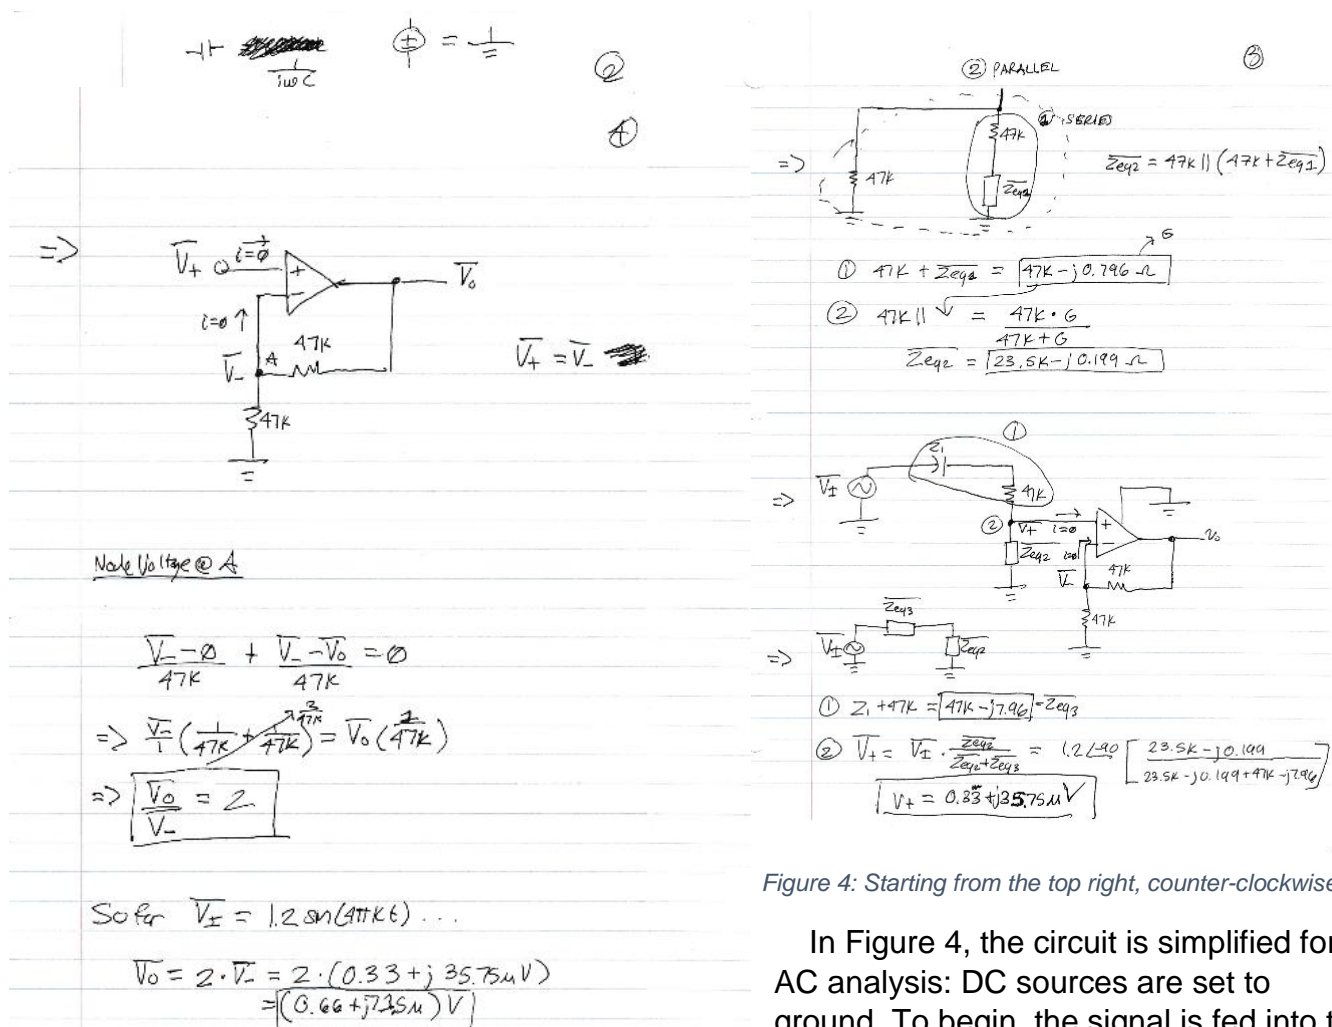 1/(iωC)
=
②
④
=>
V̅₊ i=0 + V̅₀
−
i=0 ↑
47K
V̅₋ A
V̅₊ = V̅₋
47K
Node Voltage @ A
(V̅₋ − 0)/47K + (V̅₋ − V̅₀)/47K = 0
=> V̅₋/1 (1/47K + 1/47K) = V̅₀ (1/47K)
=> V̅₀/V̅₋ = 2
So for V̅_I = 1.2 sin(4πKt) ...
V̅₀ = 2·V̅₋ = 2·(0.33 + j 35.75μV)
= (0.66 + j71.5μ) V
③
② PARALLEL
① SERIES
47K
=> 47K
Z̅eq1
Z̅eq2 = 47K || (47K + Z̅eq1)
G
① 47K + Z̅eq1 = 47K − j0.796 Ω
② 47K || = 47K · G
47K + G
Z̅eq2 = 23.5K − j0.199 Ω
①
Z₁
=> V̅_I 47K
② V₊ i=0 + V₀
Z̅eq2 i=0 −
V̅₋ 47K
47K
Z̅eq3
=> V̅_I Z̅eq2
① Z₁ + 47K = 47K − j7.96 = Z̅eq3
② V̅₊ = V̅_I · Z̅eq2/(Z̅eq2 + Z̅eq3) = 1.2∠-90 [(23.5K − j0.199)/(23.5K − j0.199 + 47K − j7.96)]
V₊ = 0.33 + j35.75μV
Figure 4: Starting from the top right, counter-clockwise
In Figure 4, the circuit is simplified for
AC analysis: DC sources are set to
ground. To begin, the signal is fed into t